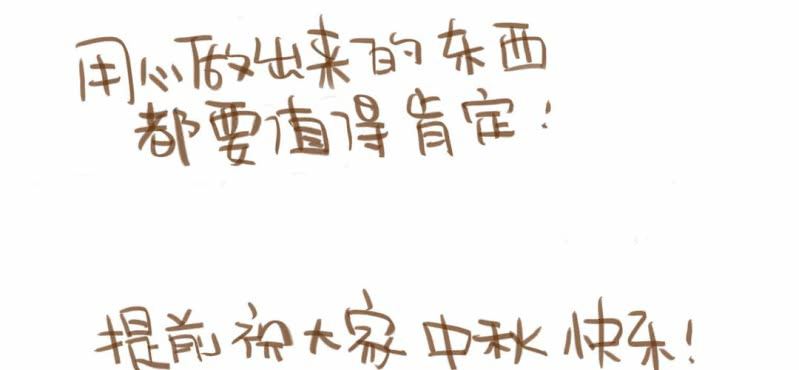 用心做出来的东西
都要值得肯定!
提前祝大家中秋快乐!